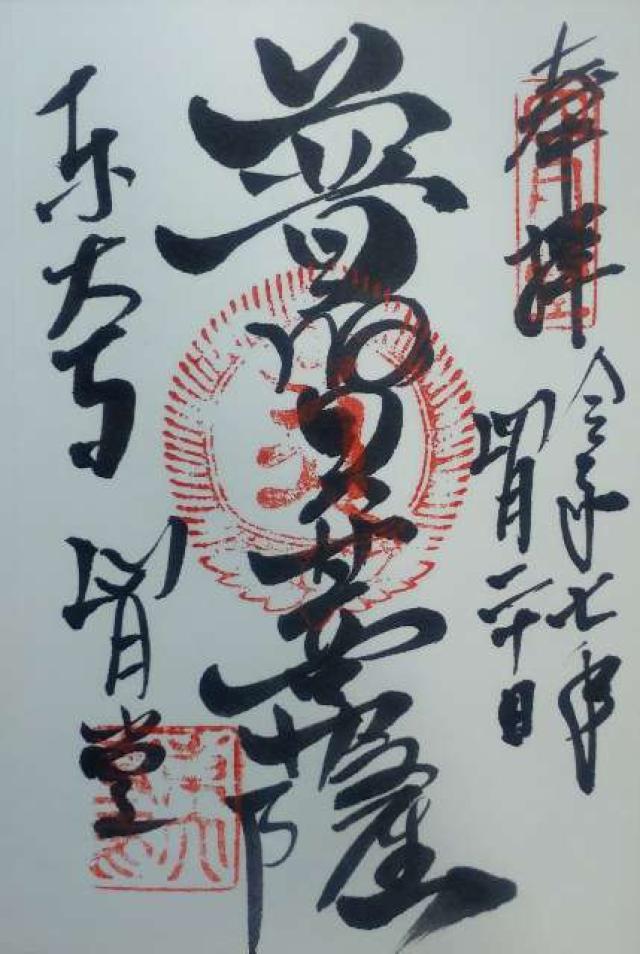 奉拝
令和七年
四月二十日
普賢菩薩
東大寺
四月堂